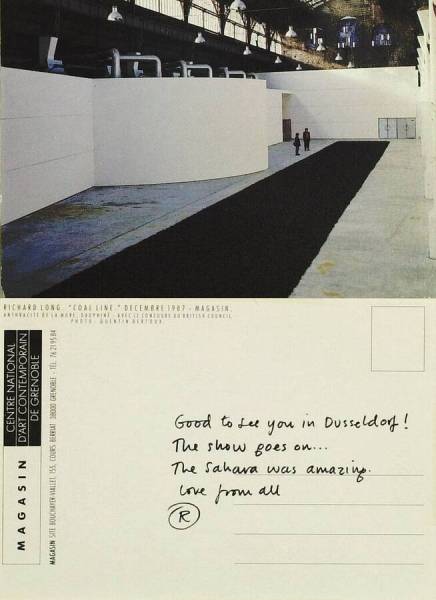 RICHARD LONG. "COAL LINE." DECEMBRE 1987 - MAGASIN.
ANTHRACITE DE LA MURE, DAUPHINÉ - AVEC LE CONCOURS DU BRITISH COUNCIL
PHOTO: QUENTIN BERTOUX.
CENTRE NATIONAL
D'ART CONTEMPORAIN
DE GRENOBLE
MAGASIN
MAGASIN SITE BOUCHAYER-VIALLET, 155, COURS BERRIAT 38000 GRENOBLE - TEL. 76.21.95.84
Good to see you in Dusseldorf!
The show goes on...
The Sahara was amazing.
Love from all
R